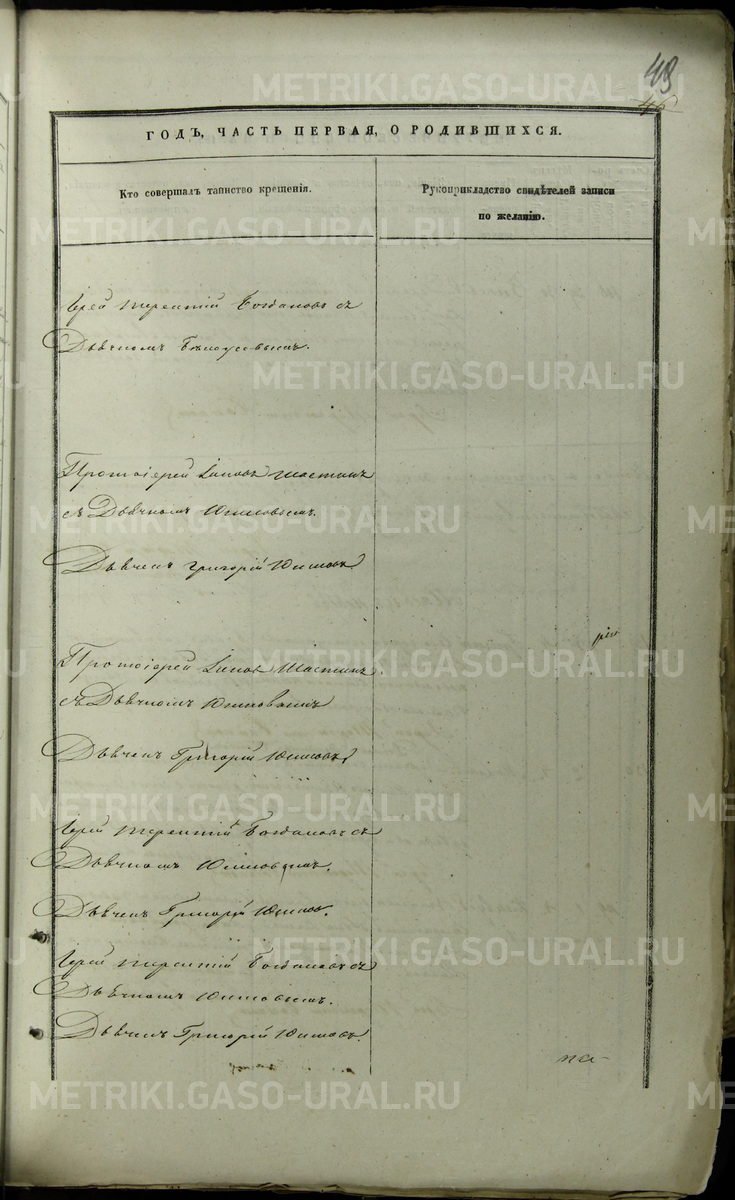 48
46
ГОДЪ, ЧАСТЬ ПЕРВАЯ, О РОДИВШИХСЯ.
Кто совершалъ таинство крещенія.
Рукоприкладство свидѣтелей записи
по желанію.
Іерей Терентій Богдановъ съ
Дьячкомъ
Протоіерей Іаковъ Шастинъ
съ Дьячкомъ Юшковымъ
Дьячекъ Григорій Юшковъ
Протоіерей Іаковъ Шастинъ
съ Дьячкомъ Юшковымъ
Дьячекъ Григорій Юшковъ
Іерей Терентій Богдановъ съ
Дьячкомъ Юшковымъ.
Дьячекъ Григорій Юшковъ.
Іерей Терентій Богдановъ съ
Дьячкомъ Юшковымъ.
Дьячекъ Григорій Юшковъ.
METRIKI.GASO-URAL.RU